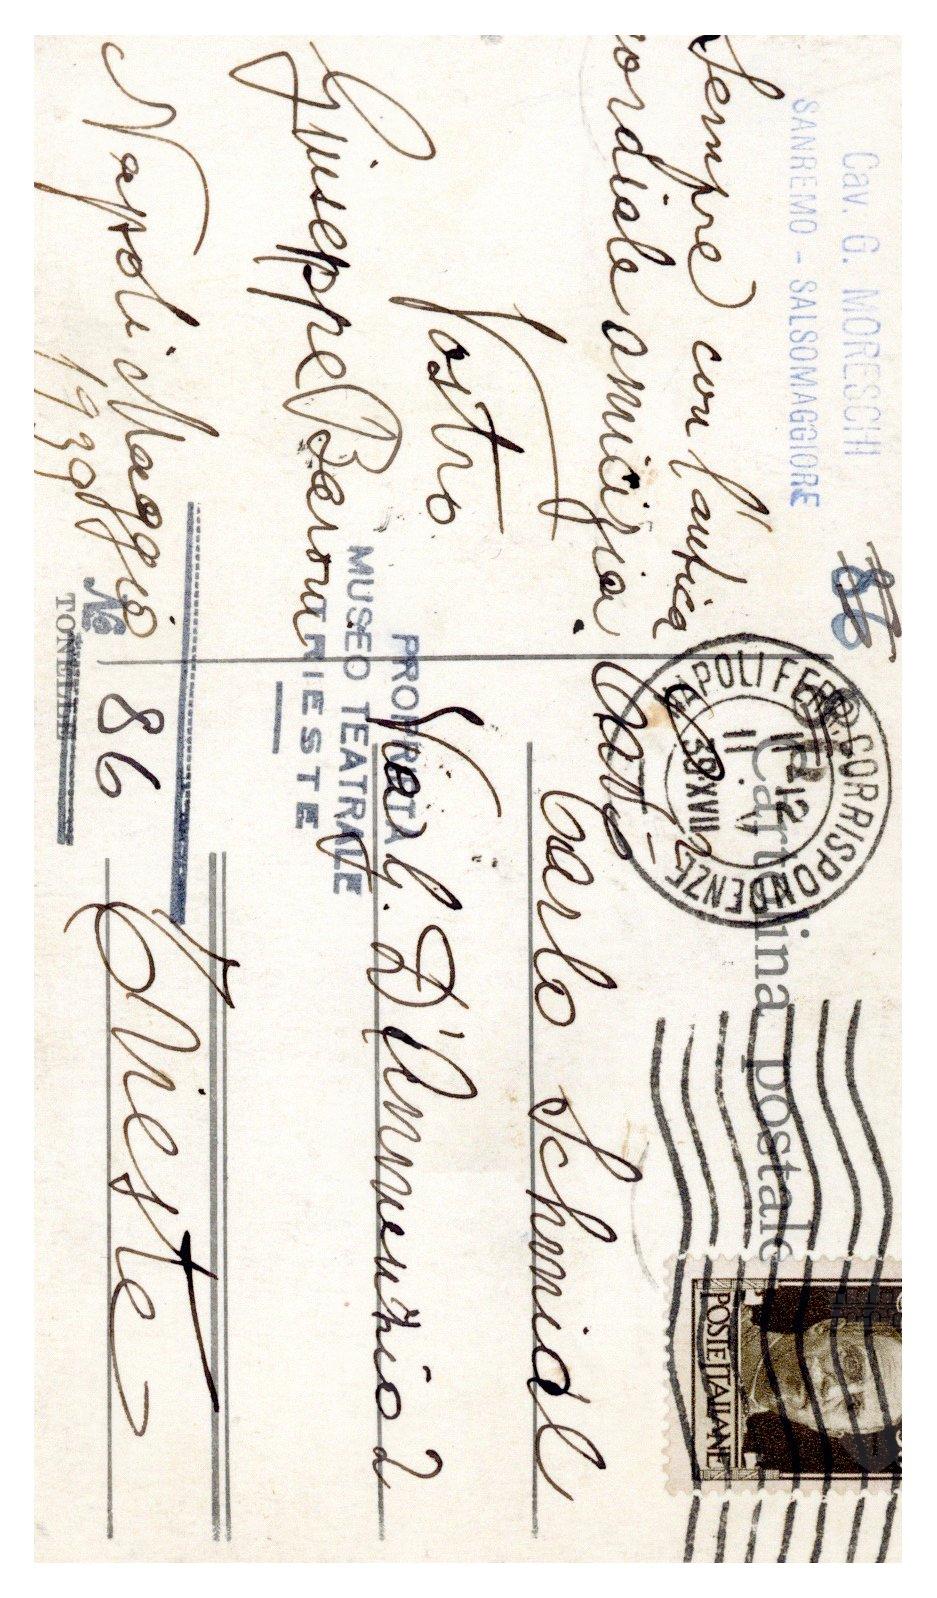 Cav. G. MORESCHI
SANREMO - SALSOMAGGIORE
Sempre con l'antica
cordiale amicizia.
Vostro
Giuseppe
Napoli Maggio
1939
86
Cartolina postale
NAPOLI FERR. CORRISPONDENZE
11-12
11.V
39.XVII
POSTE ITALIANE
Carlo Schmidl
Via G. D'Annunzio 2
Trieste
PROPRIETÀ
MUSEO TEATRALE
TRIESTE
No 86